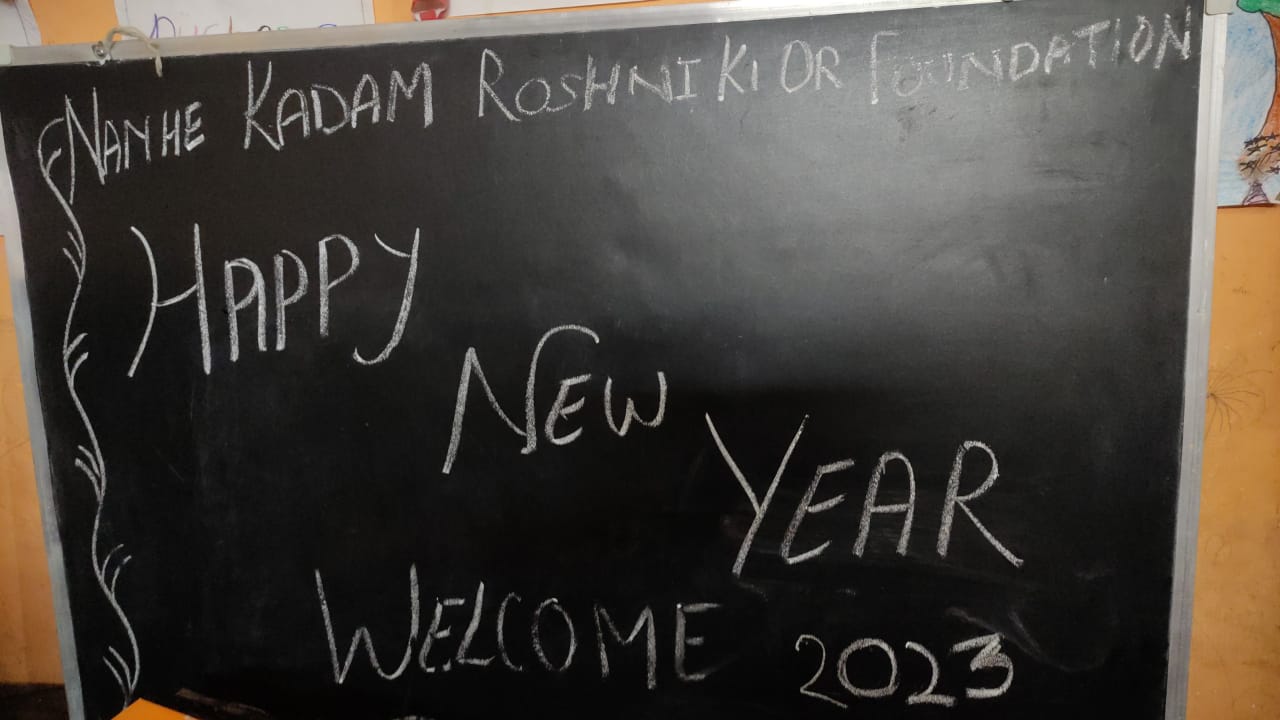 NANHE KADAM ROSHNI KI OR FOUNDATION
HAPPY
NEW
YEAR
WELCOME 2023